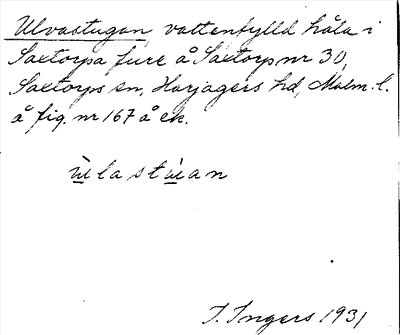 Ulvastugan, vattenfylld håla i
Saxtorps fure å Saxtorp nr 30,
Saxtorps sn, Harjagers hd, Malm. l.
å fig. nr 167 å ek.
ùlastùan
I. Ingers 1931